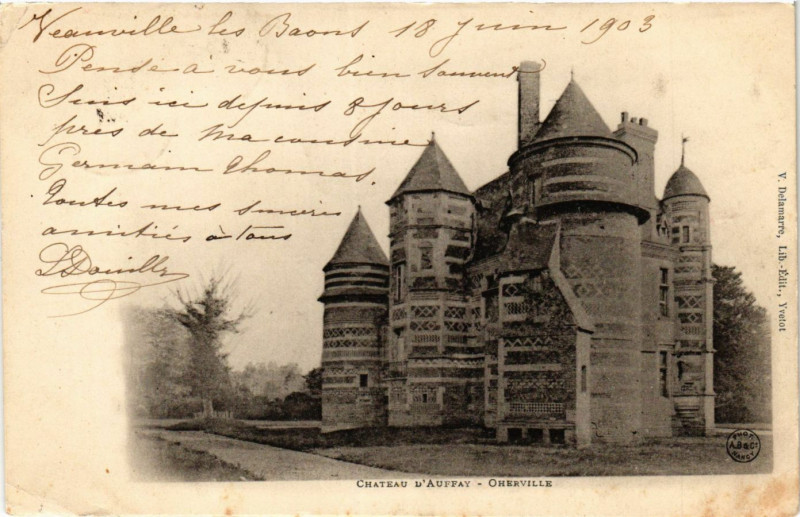 Veauville les Baons 18 Juin 1903
Pense à vous bien souvent
Suis ici depuis 8 jours
près de ma cousine
Germain Thomas.
Toutes mes sincères
amitiés à tous
L Douille
V. Delamarre, Lib.-Édit., Yvetot
PHOT
A.B & Cie
NANCY
CHATEAU D'AUFFAY - OHERVILLE